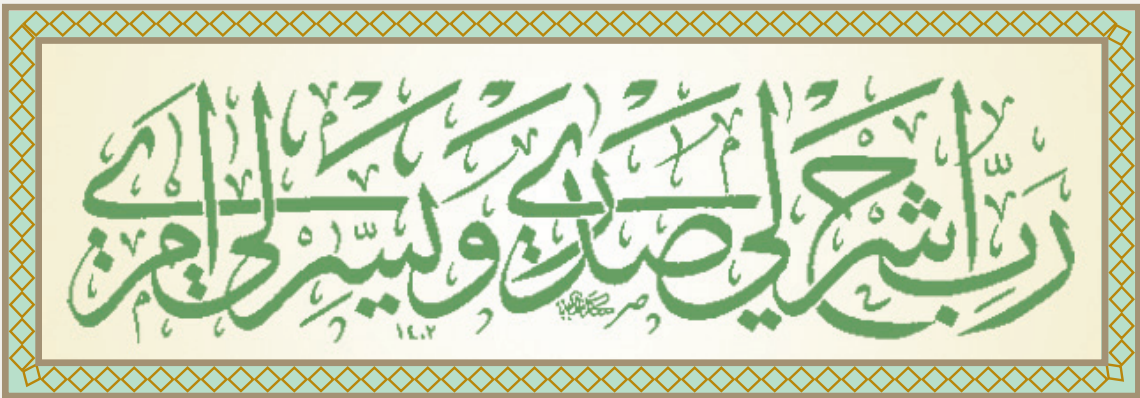 رب اشرح لي صدري ويسر لي امري
١٤٠٢